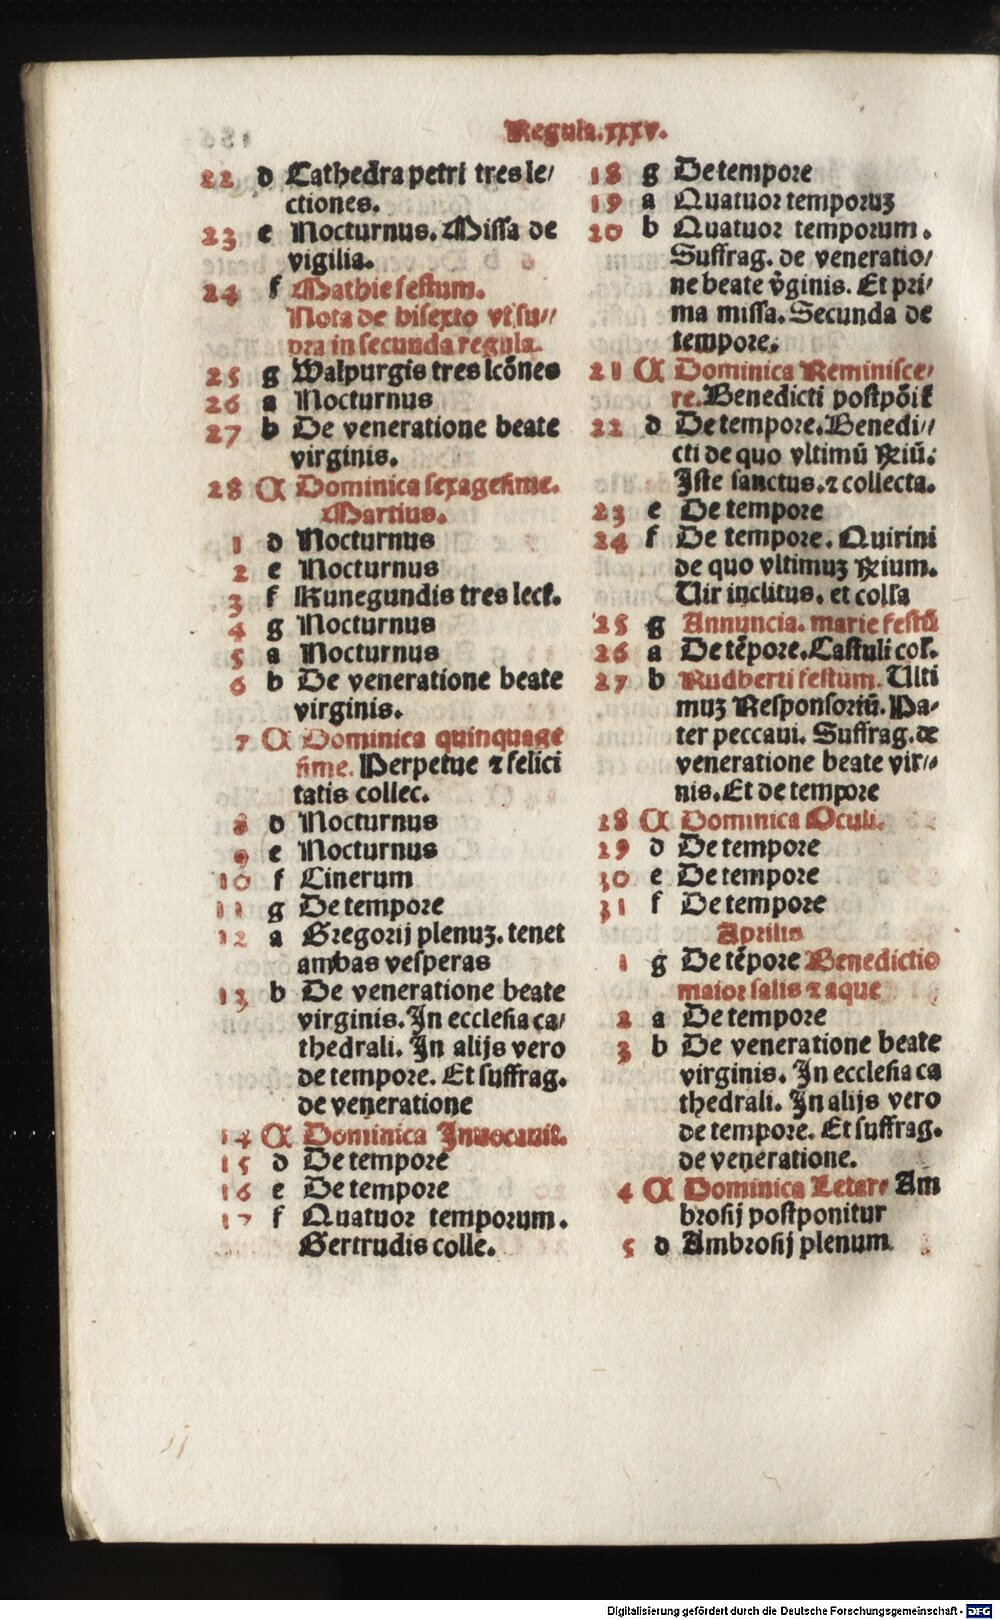 Regula.xxxv.
22 d Cathedra petri tres le/
ctiones.
23 e Nocturnus. Missa de
vigilia.
24 f Mathie festum.
Nota de bisexto vt su//
pra in secunda regula.
25 g Walpurgis tres lcōnes
26 a Nocturnus
27 b De veneratione beate
virginis.
28 A Dominica sexagesime.
Martius.
1 d Nocturnus
2 e Nocturnus
3 f Kunegundis tres lect.
4 g Nocturnus
5 a Nocturnus
6 b De veneratione beate
virginis.
7 A Dominica quinquage
sime. Perpetue ⁊ felici
tatis collec.
8 d Nocturnus
9 e Nocturnus
10 f Cinerum
11 g De tempore
12 a Gregorij plenuꝫ. tenet
ambas vesperas
13 b De veneratione beate
virginis. In ecclesia ca/
thedrali. In alijs vero
de tempore. Et suffrag.
de veneratione
14 A Dominica Inuocauit.
15 d De tempore
16 e De tempore
17 f Quatuor temporum.
Gertrudis colle.
18 g De tempore
19 a Quatuor temporuꝫ
20 b Quatuor temporum.
Suffrag. de veneratio/
ne beate v̄ginis. Et pri/
ma missa. Secunda de
tempore.
21 A Dominica Reminisce/
re. Benedicti postpōit
22 d De tempore. Benedi//
cti de quo vltimū ꝶiū.
Iste sanctus. ⁊ collecta.
23 e De tempore
24 f De tempore. Quirini
de quo vltimuꝫ ꝶium.
Vir inclitus. et colla
25 g Annuncia. marie festū
26 a De tēpore. Castuli col.
27 b Rudberti festum. Ulti
muꝫ Responsoriū. Pa-
ter peccaui. Suffrag. de
veneratione beate vir//
nis. Et de tempore
28 A Dominica Oculi.
29 d De tempore
30 e De tempore
31 f De tempore
Aprilis
1 g De tēpore Benedictio
maior salis ⁊ aque
2 a De tempore
3 b De veneratione beate
virginis. In ecclesia ca
thedrali. In alijs vero
de tempore. Et suffrag.
de veneratione.
4 A Dominica Letare Am
brosij postponitur
5 d Ambrosij plenum
Digitalisierung gefördert durch die Deutsche Forschungsgemeinschaft - DFG